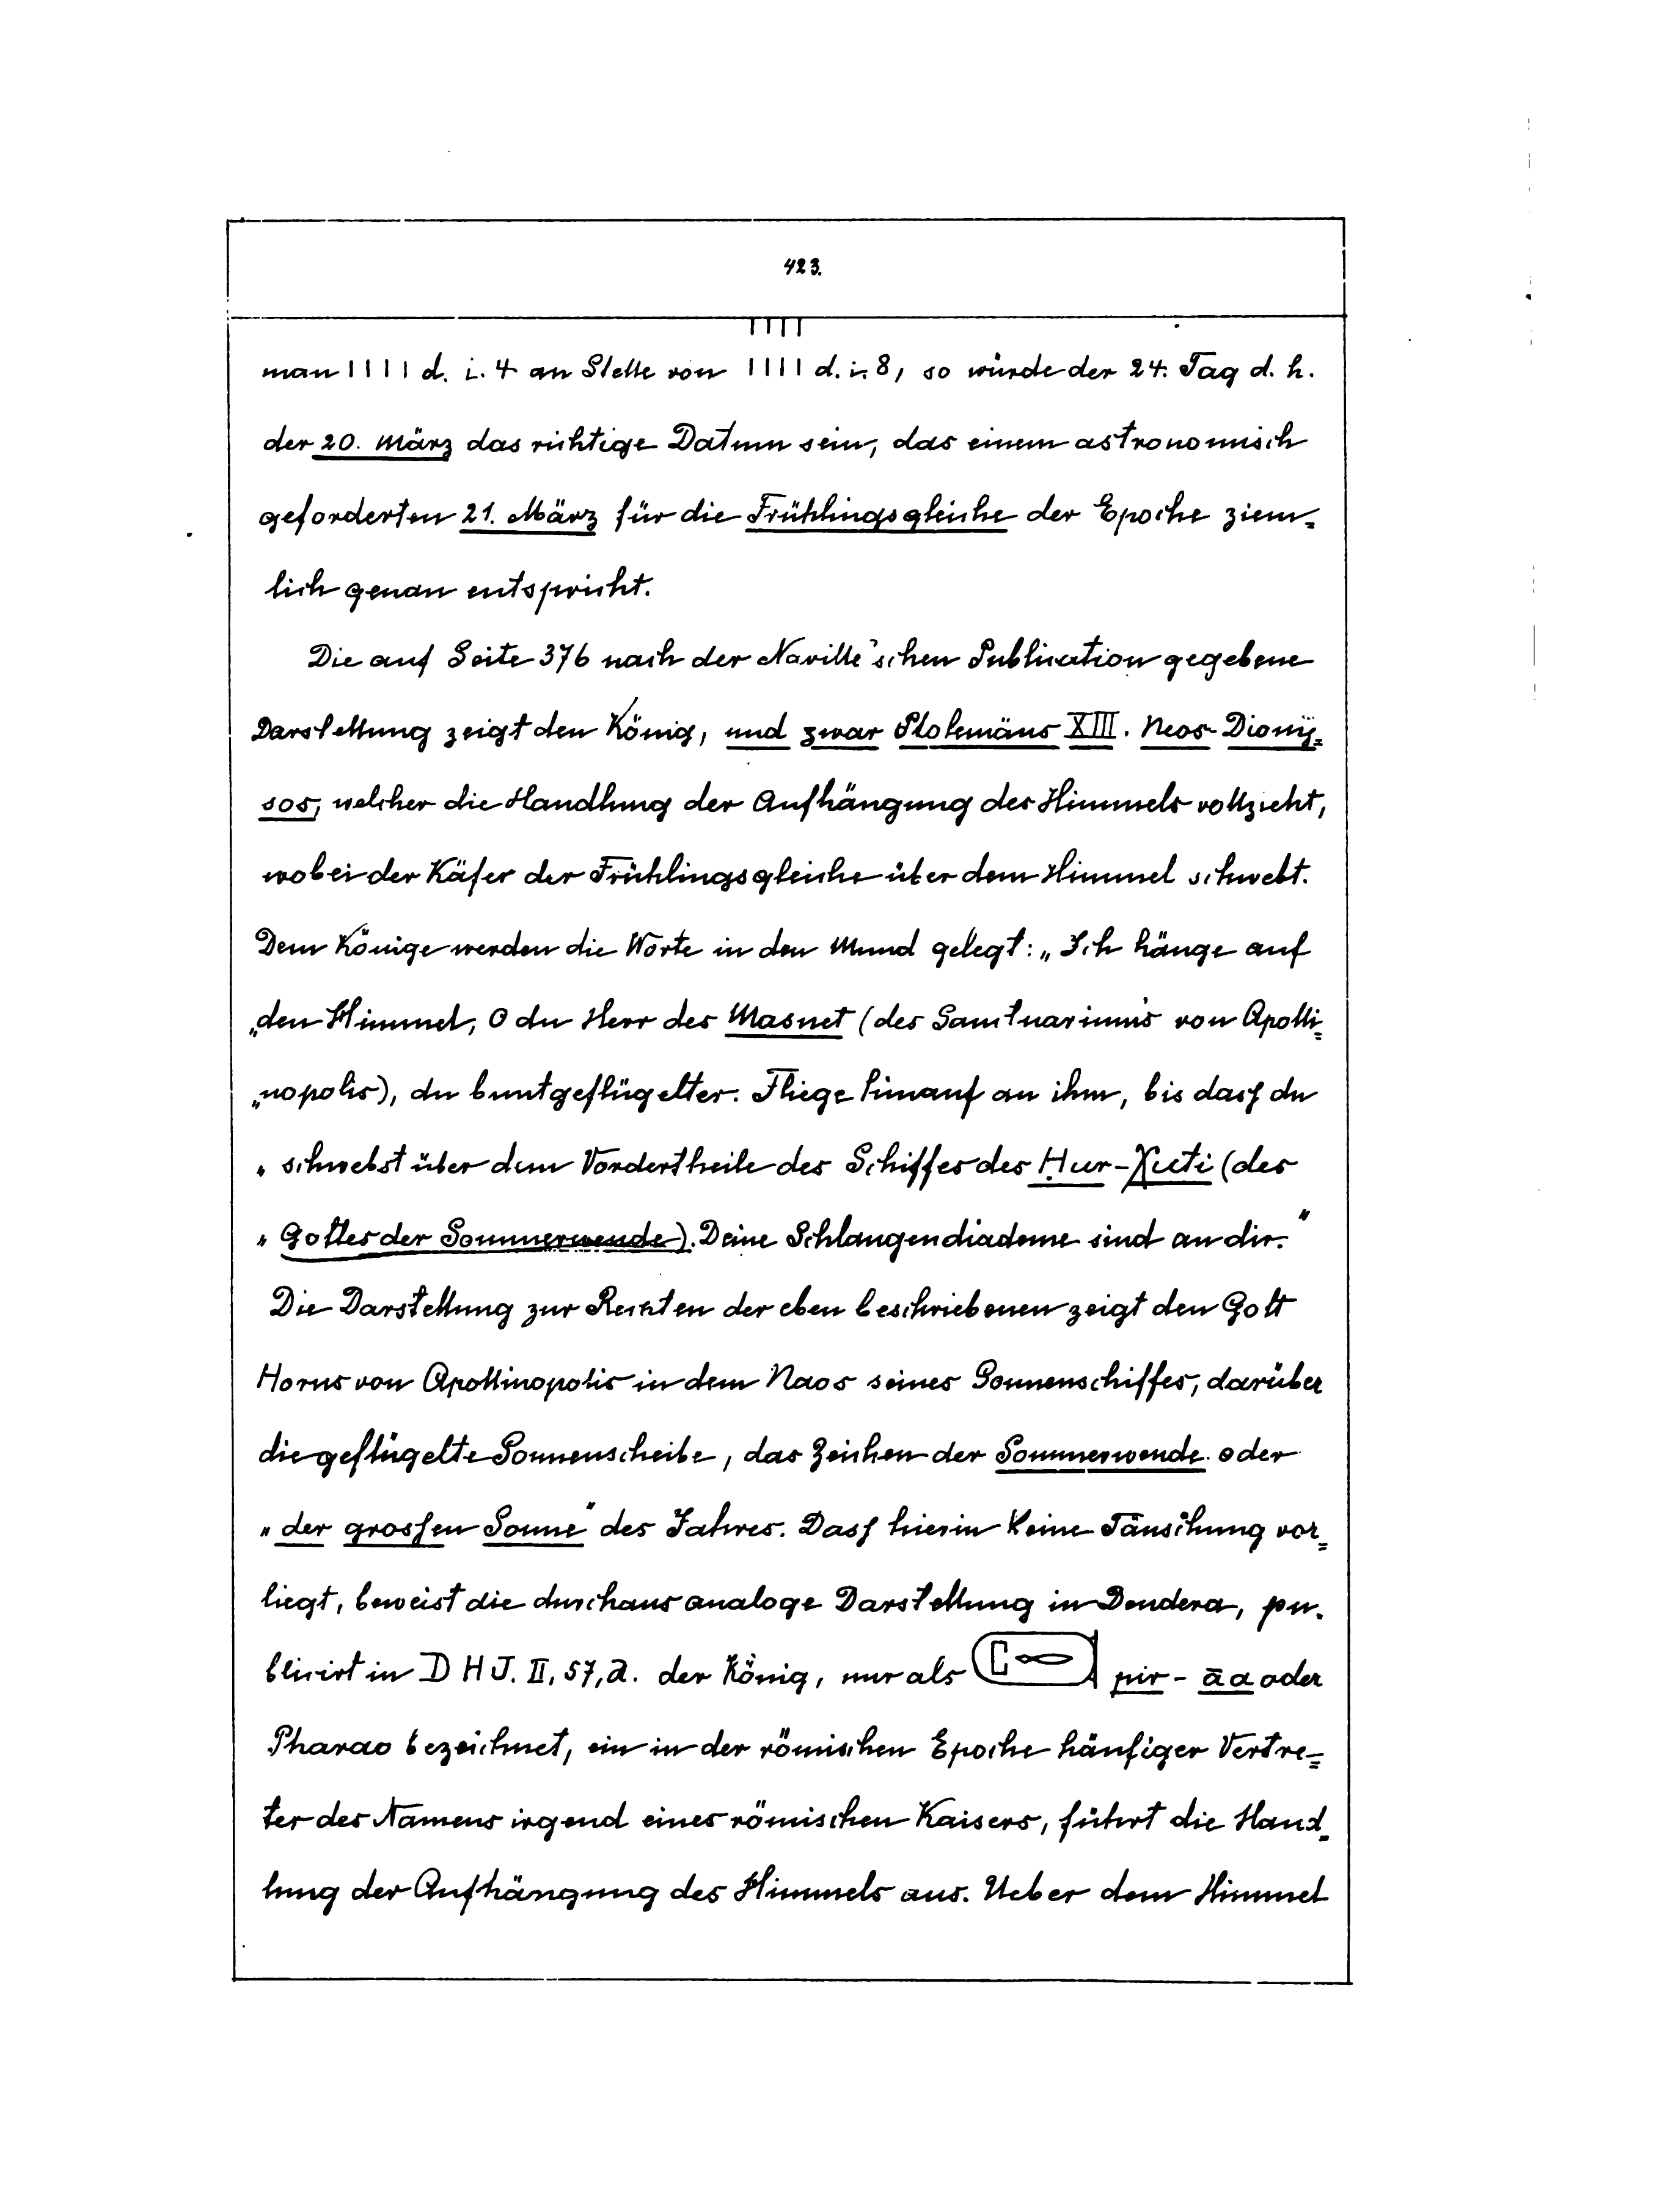 423.
man IIII d. i. 4 an Stelle von IIII IIII d. i. 8, so würde der 24. Tag d. h.
der 20. März das richtige Datum sein, das einem astronomisch
geforderten 21. März für die Frühlingsgleiche der Epoche ziem=
lich genau entspricht.
Die auf Seite 376 nach der Naville'schen Publication gegebene
Darstellung zeigt den König, und zwar Ptolemäus XIII. Neos-Diony=
sos, welcher die Handlung der Aufhängung des Himmels vollzieht,
wobei der Käfer der Frühlingsgleiche über dem Himmel schwebt.
Dem Könige werden die Worte in den Mund gelegt: „Ich hänge auf
„den Himmel, O du Herr des Masnet (des Sanctuariums von Apolli=
„nopolis), du buntgeflügelter. Fliege hinauf an ihm, bis dass du
„schwebst über dem Vordertheile des Schiffes des Ḥur-Xuti (des
„Gottes der Sommerwende). Deine Schlangendiademe sind an dir.“
Die Darstellung zur Rechten der eben beschriebenen zeigt den Gott
Horus von Apollinopolis in dem Naos seines Sonnenschiffes, darüber
die geflügelte Sonnenscheibe, das Zeichen der Sommerwende oder
„der grossen Sonne“ des Jahres. Dass hierin keine Täuschung vor=
liegt, beweist die durchaus analoge Darstellung in Dendera, pu=
blicirt in D H J. II, 57, a. der König, nur als pir-āa oder
Pharao bezeichnet, ein in der römischen Epoche häufiger Vertre=
ter des Namens irgend eines römischen Kaisers, führt die Hand=
lung der Aufhängung des Himmels aus. Ueber dem Himmel